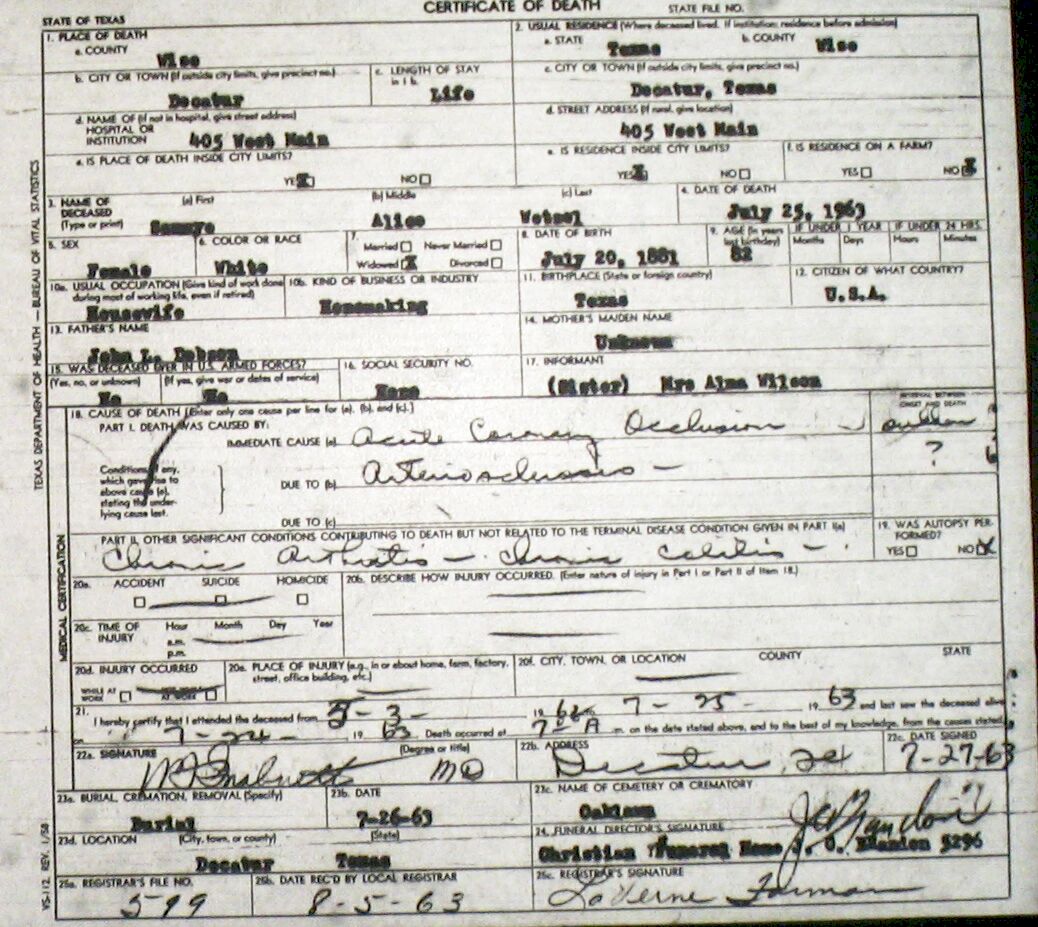 CERTIFICATE OF DEATH
STATE OF TEXAS STATE FILE NO.
1. PLACE OF DEATH
a. COUNTY
Wise
2. USUAL RESIDENCE (Where deceased lived. If institution: residence before admission)
a. STATE b. COUNTY
Texas Wise
b. CITY OR TOWN (If outside city limits, give precinct no.)
Decatur
c. LENGTH OF STAY in 1 b.
Life
c. CITY OR TOWN (If outside city limits, give precinct no.)
Decatur, Texas
d. NAME OF (If not in hospital, give street address)
HOSPITAL OR
INSTITUTION 405 West Main
d. STREET ADDRESS (If rural, give location)
405 West Main
e. IS PLACE OF DEATH INSIDE CITY LIMITS?
YES X NO
e. IS RESIDENCE INSIDE CITY LIMITS?
YES X NO
f. IS RESIDENCE ON A FARM?
YES NO X
3. NAME OF DECEASED (Type or print)
(a) First (b) Middle (c) Last
Sammye Alice Wetsel
4. DATE OF DEATH
July 25, 1963
5. SEX
Female
6. COLOR OR RACE
White
7. Married Never Married
Widowed X Divorced
8. DATE OF BIRTH
July 20, 1881
9. AGE (In years last birthday)
82
IF UNDER 1 YEAR IF UNDER 24 HRS.
Months Days Hours Minutes
10a. USUAL OCCUPATION (Give kind of work done during most of working life, even if retired)
Housewife
10b. KIND OF BUSINESS OR INDUSTRY
Homemaking
11. BIRTHPLACE (State or foreign country)
Texas
12. CITIZEN OF WHAT COUNTRY?
U.S.A.
13. FATHER'S NAME
John L. Dobson
14. MOTHER'S MAIDEN NAME
Unknown
15. WAS DECEASED EVER IN U.S. ARMED FORCES?
(Yes, no, or unknown) (If yes, give war or dates of service)
No No
16. SOCIAL SECURITY NO.
None
17. INFORMANT
(Sister) Mrs Alma Wilson
18. CAUSE OF DEATH [Enter only one cause per line for (a), (b), and (c).]
INTERVAL BETWEEN ONSET AND DEATH
PART I. DEATH WAS CAUSED BY:
IMMEDIATE CAUSE (a) Acute Coronary Occlusion sudden
Conditions, if any, which gave rise to above cause (a), stating the underlying cause last.
DUE TO (b) Arteriosclerosis - ?
DUE TO (c)
PART II. OTHER SIGNIFICANT CONDITIONS CONTRIBUTING TO DEATH BUT NOT RELATED TO THE TERMINAL DISEASE CONDITION GIVEN IN PART I(a)
Chronic Arthritis - Chronic Colitis -
19. WAS AUTOPSY PERFORMED?
YES NO X
20a. ACCIDENT SUICIDE HOMICIDE
20b. DESCRIBE HOW INJURY OCCURRED. (Enter nature of injury in Part I or Part II of Item 18.)
20c. TIME OF INJURY
Hour Month Day Year
a.m.
p.m.
20d. INJURY OCCURRED
WHILE AT WORK AT WORK
20e. PLACE OF INJURY (e.g., in or about home, farm, factory, street, office building, etc.)
20f. CITY, TOWN, OR LOCATION COUNTY STATE
21. I hereby certify that I attended the deceased from 3- 7-25- 1963 and last saw the deceased alive
on 7-24- 1963 Death occurred at A m. on the date stated above, and to the best of my knowledge, from the causes stated.
22a. SIGNATURE (Degree or title)
MD
22b. ADDRESS
Decatur
22c. DATE SIGNED
7-27-63
23a. BURIAL, CREMATION, REMOVAL (Specify)
Burial
23b. DATE
7-26-63
23c. NAME OF CEMETERY OR CREMATORY
Oaklawn
23d. LOCATION (City, town, or county) (State)
Decatur Texas
24. FUNERAL DIRECTOR'S SIGNATURE
Christian Home 5296
25a. REGISTRAR'S FILE NO.
599
25b. DATE REC'D BY LOCAL REGISTRAR
8-5-63
25c. REGISTRAR'S SIGNATURE
LaVerne Forman
MEDICAL CERTIFICATION
TEXAS DEPARTMENT OF HEALTH — BUREAU OF VITAL STATISTICS
VS-112 REV. 1/58